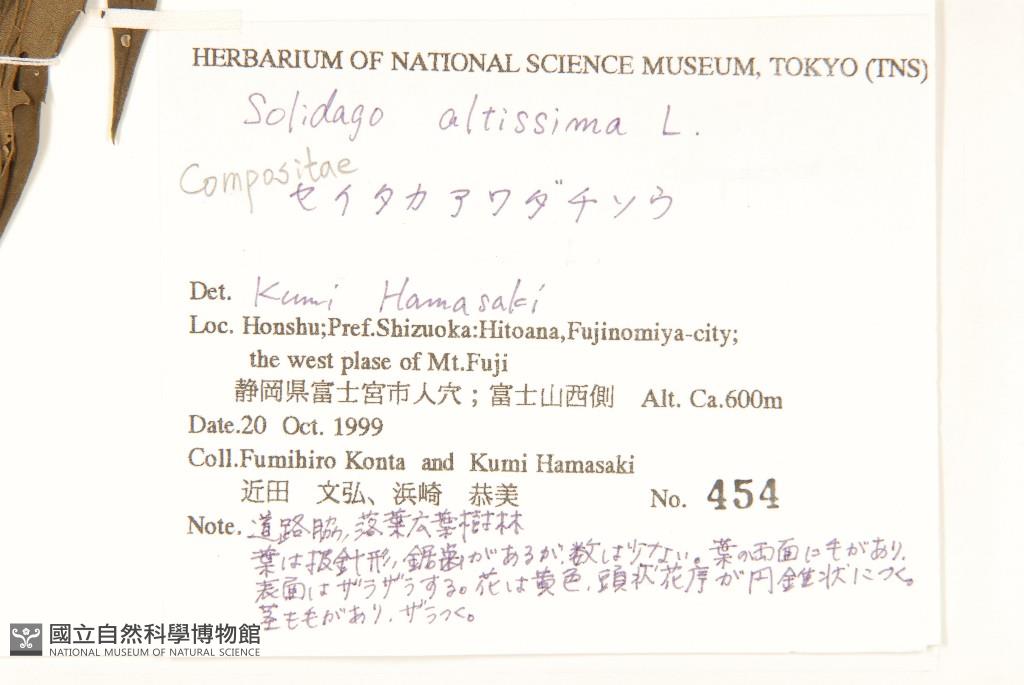 HERBARIUM OF NATIONAL SCIENCE MUSEUM, TOKYO (TNS)
Solidago altissima L.
Compositae
セイタカアワダチソウ
Det. Kumi Hamasaki
Loc. Honshu;Pref.Shizuoka:Hitoana,Fujinomiya-city;
the west plase of Mt.Fuji
静岡県富士宮市人穴；富士山西側 Alt. Ca.600m
Date.20 Oct. 1999
Coll.Fumihiro Konta and Kumi Hamasaki
近田 文弘、浜崎 恭美 No. 454
Note. 道路脇, 落葉広葉樹林
葉は披針形, 鋸歯があるが, 数は少ない。葉の両面に毛があり,
表面はザラザラする。花は黄色, 頭状花序が円錐状につく。
茎も毛があり, ザラつく。
國立自然科學博物館
NATIONAL MUSEUM OF NATURAL SCIENCE